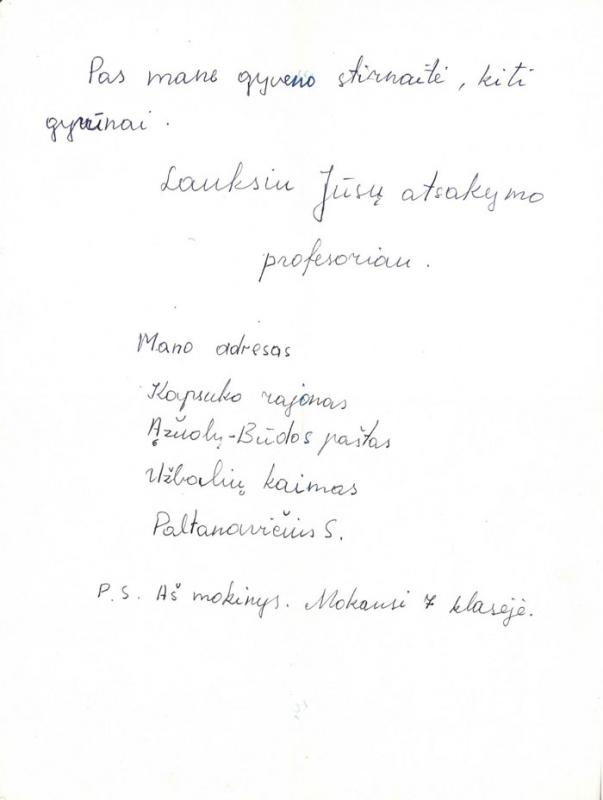 Pas mane gyveno stirnaitė, kiti
gyvūnai.
Lauksiu Jūsų atsakymo
profesoriau.
Mano adresas
Kapsuko rajonas
Ąžuolų-Būdos paštas
Užbalių kaimas
Paltanavičius S.
P.S. Aš mokinys. Mokausi 7 klasėje.